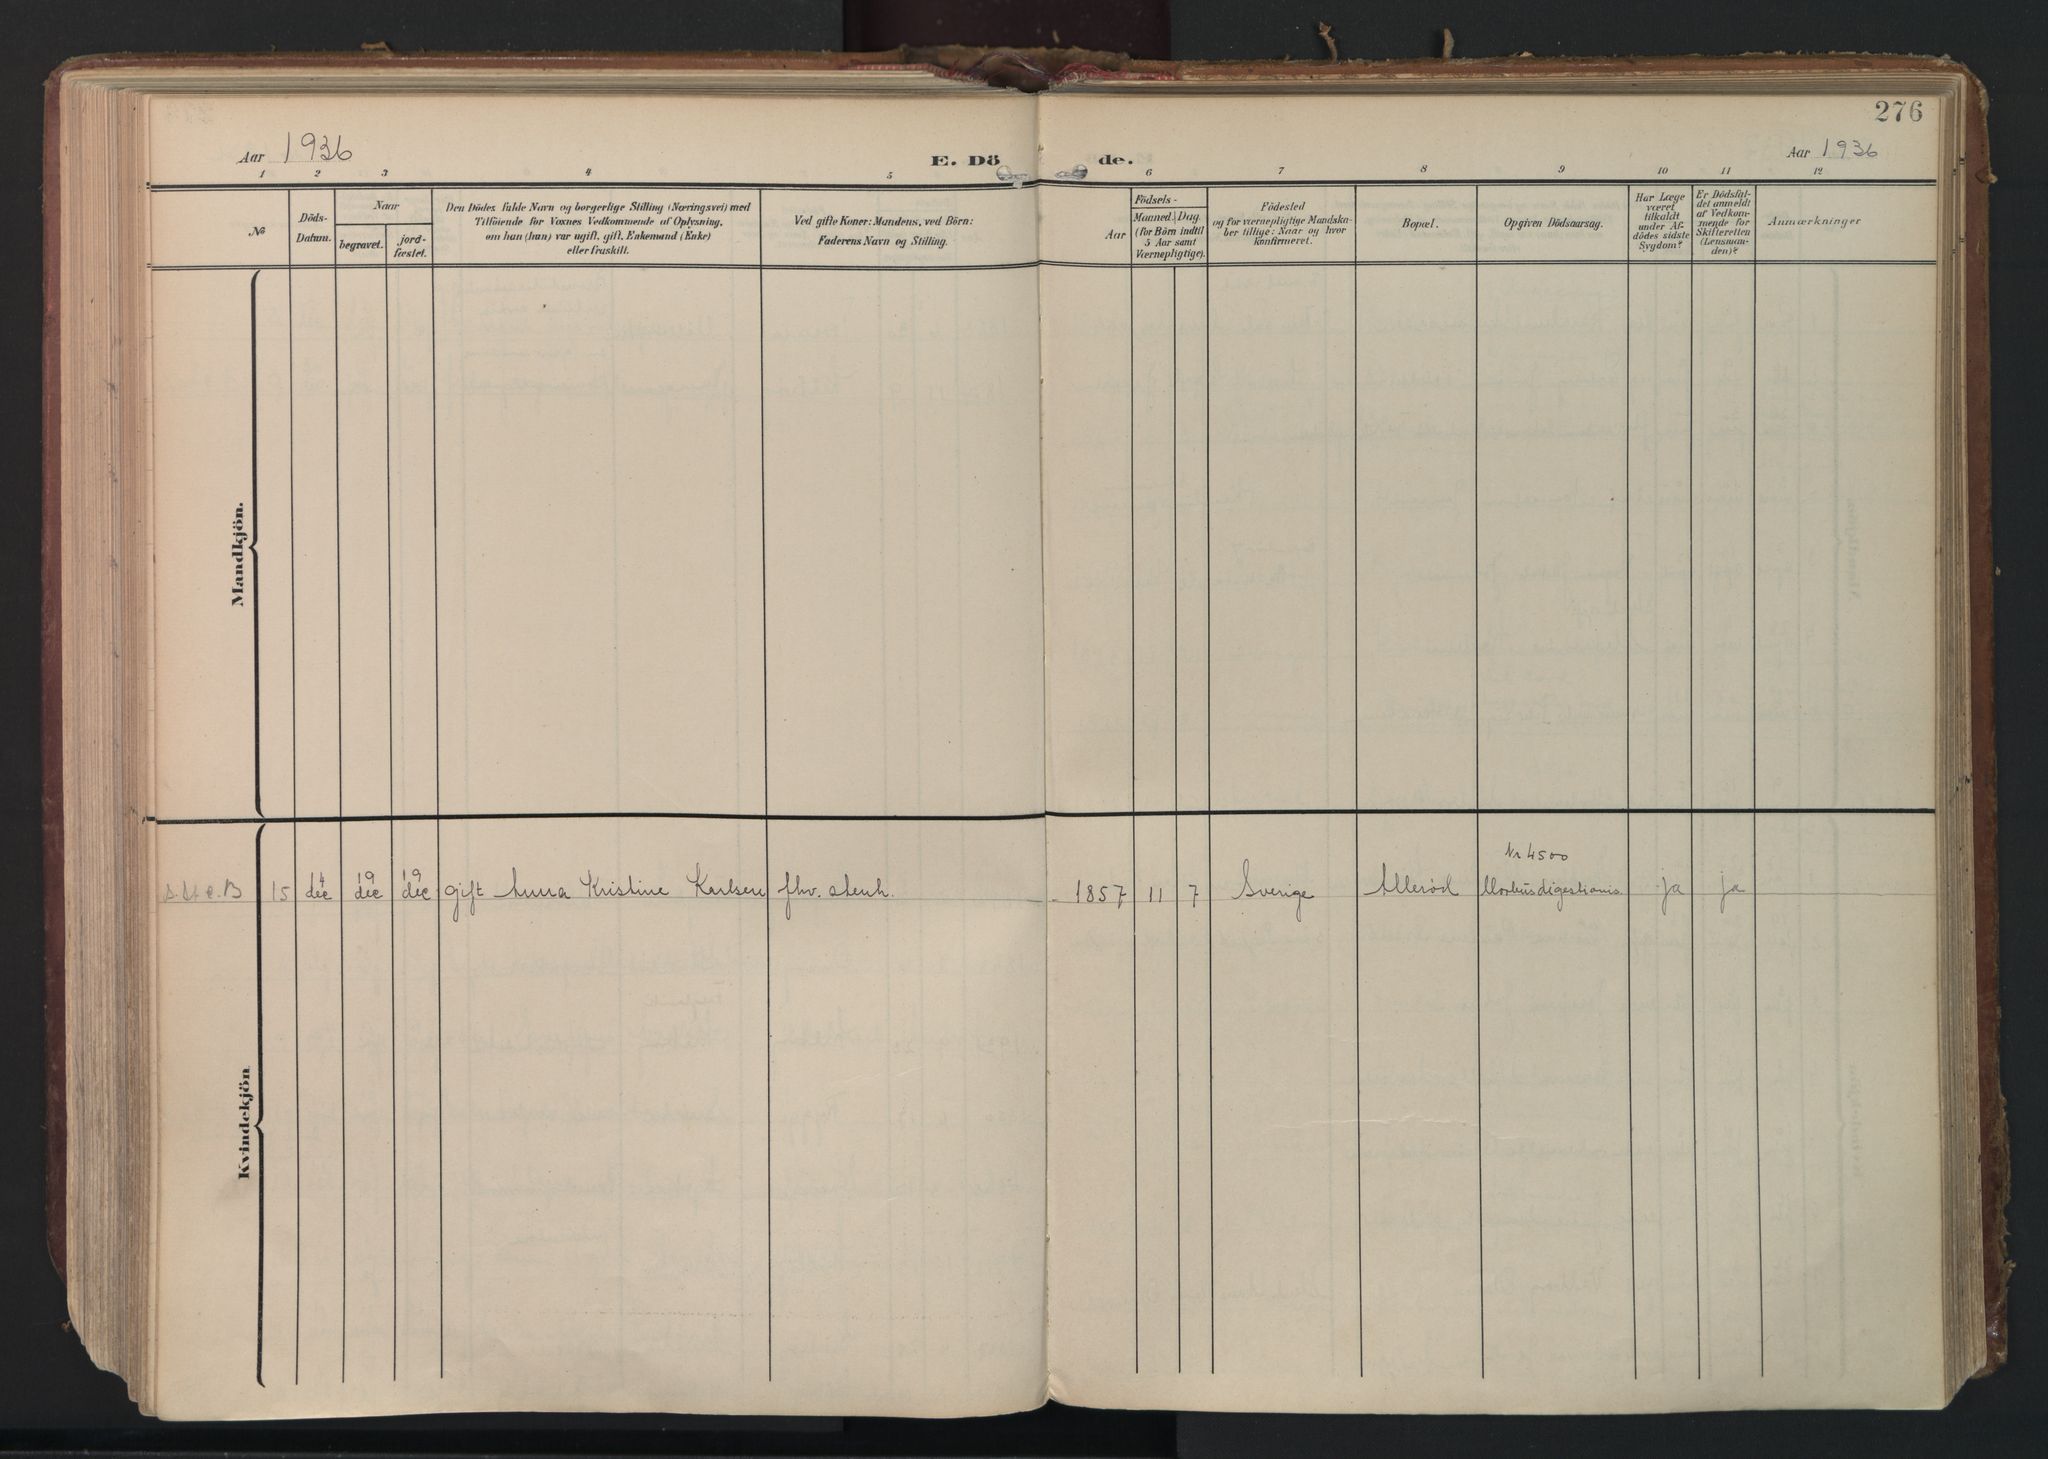 276
Aar 1936
E. Dö
de.
Aar 1936
1 2 3 4 5 6 7 8 9 10 11 12
№
Döds-
Datum.
Naar
begravet.
jord-
fæstet.
Den Dödes fulde Navn og borgerlige Stilling (Næringsvei) med
Tilföiende for Voxnes Vedkommende af Oplysning,
om han (hun) var ugift, gift, Enkemand (Enke)
eller fraskilt.
Ved gifte Koner: Mandens, ved Börn:
Faderens Navn og Stilling.
Födsels-
Aar
Maaned.
Dag.
(for Börn indtil
5 Aar samt
Værnepligtige).
Födested
og for værnepligtige Mandska-
ber tillige: Naar og hvor
konfirmeret.
Bopæl.
Opgiven Dödsaarsag.
Har Læge
været
tilkaldt
under Af-
dödes sidste
Sygdom?
Er Dödsfal-
det anmeldt
af Vedkom-
mende for
Skifteretten
(Lensman-
den)?
Anmærkninger
Mandkjön.
Nr 4500
15 14 dec 19 dec 19 dec gift Anna Kristine Karlsen fhv. stenh. 1857 11 7 Sverige Allerød Morbus digestionis ja ja
Kvindekjön